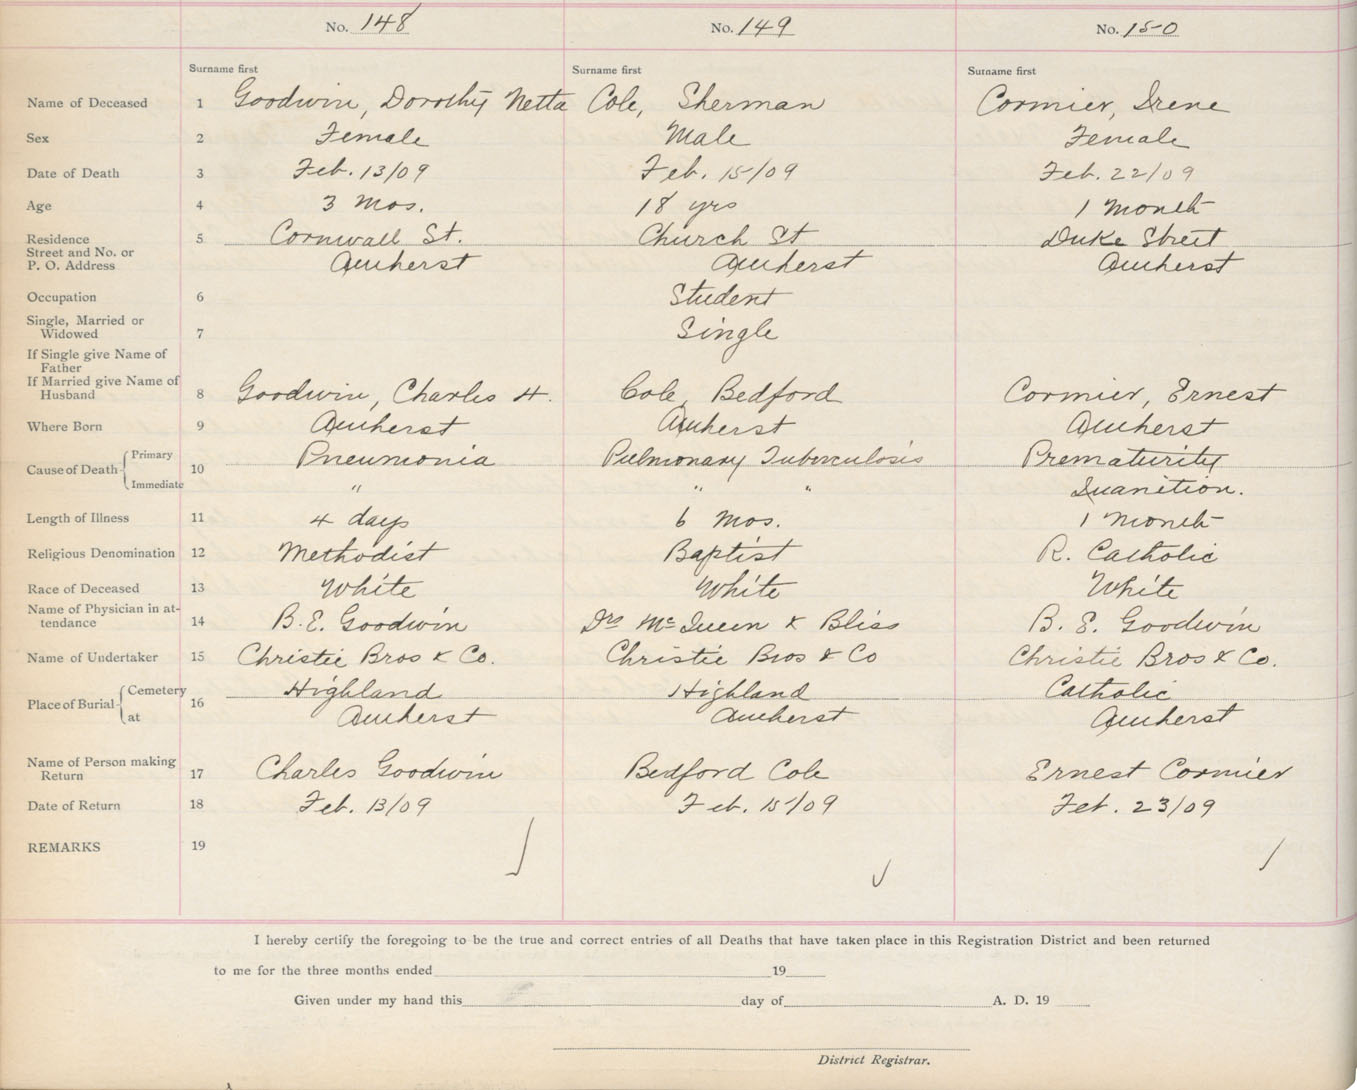 No. 148 No. 149 No. 150
Surname first Surname first Surname first
Name of Deceased 1 Goodwin, Dorothy Netta Cole, Sherman Cormier, Irene
Sex 2 Female Male Female
Date of Death 3 Feb. 13/09 Feb. 15/09 Feb. 22/09
Age 4 3 mos. 18 yrs 1 month
Residence 5 Cornwall St. Church St Duke Street
Street and No. or
P. O. Address Amherst Amherst Amherst
Occupation 6 Student
Single, Married or
Widowed 7 Single
If Single give Name of
Father
If Married give Name of
Husband 8 Goodwin, Charles H. Cole, Bedford Cormier, Ernest
Where Born 9 Amherst Amherst Amherst
Cause of Death Primary 10 Pneumonia Pulmonary Tuberculosis Prematurity
Immediate " " " Inanition.
Length of Illness 11 4 days 6 mos. 1 month
Religious Denomination 12 Methodist Baptist R. Catholic
Race of Deceased 13 White White White
Name of Physician in at-
tendance 14 B. E. Goodwin Drs McQueen & Bliss B. E. Goodwin
Name of Undertaker 15 Christie Bros & Co. Christie Bros & Co Christie Bros & Co.
Place of Burial Cemetery 16 Highland Highland Catholic
at Amherst Amherst Amherst
Name of Person making
Return 17 Charles Goodwin Bedford Cole Ernest Cormier
Date of Return 18 Feb. 13/09 Feb. 15/09 Feb. 23/09
REMARKS 19
I hereby certify the foregoing to be the true and correct entries of all Deaths that have taken place in this Registration District and been returned
to me for the three months ended 19
Given under my hand this day of A. D. 19
District Registrar.